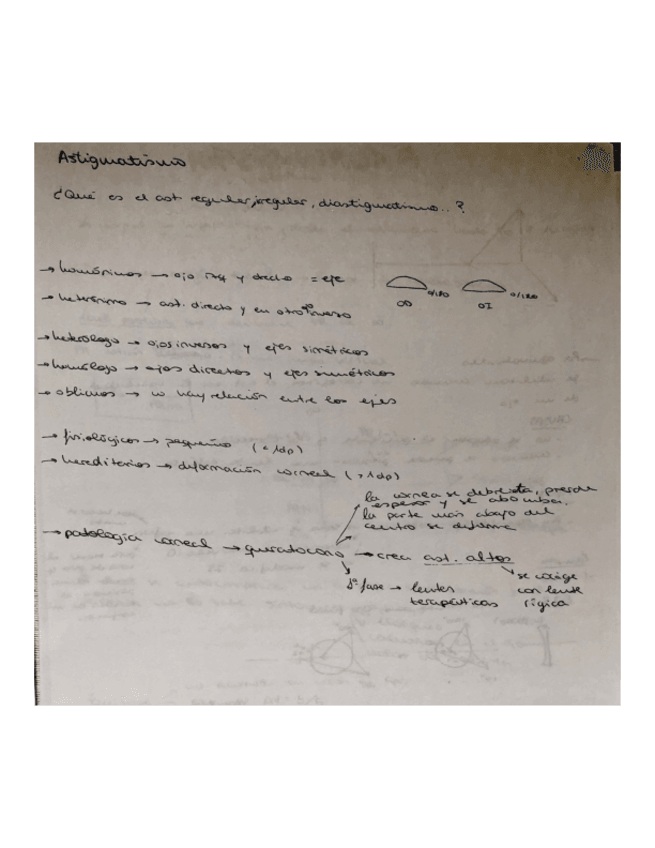 Astigmatismo
¿Qué es el ast regular, irregular, diastigmatismo..?
→ homónimos → ojo izq y drecho = eje
0/180 0/180
OD OI
→ heterónimo → ast. directo y en otro ojo inverso
→ heterólogo → ojos inversos y ejes simétricos
→ homólogo → ojos directos y ejes simétricos
→ oblicuos → no hay relación entre los ejes
→ fisiológicos → pequeño (<1dp)
→ hereditarios → deformación corneal (>1dp)
la cornea se debilita, pierde
espesor y se abomba.
la parte más abajo del
centro se deforma
→ patología corneal → queratocono → crea ast. altos
1ª fase → lentes
terapéuticas
se corrige
con lente
rígica